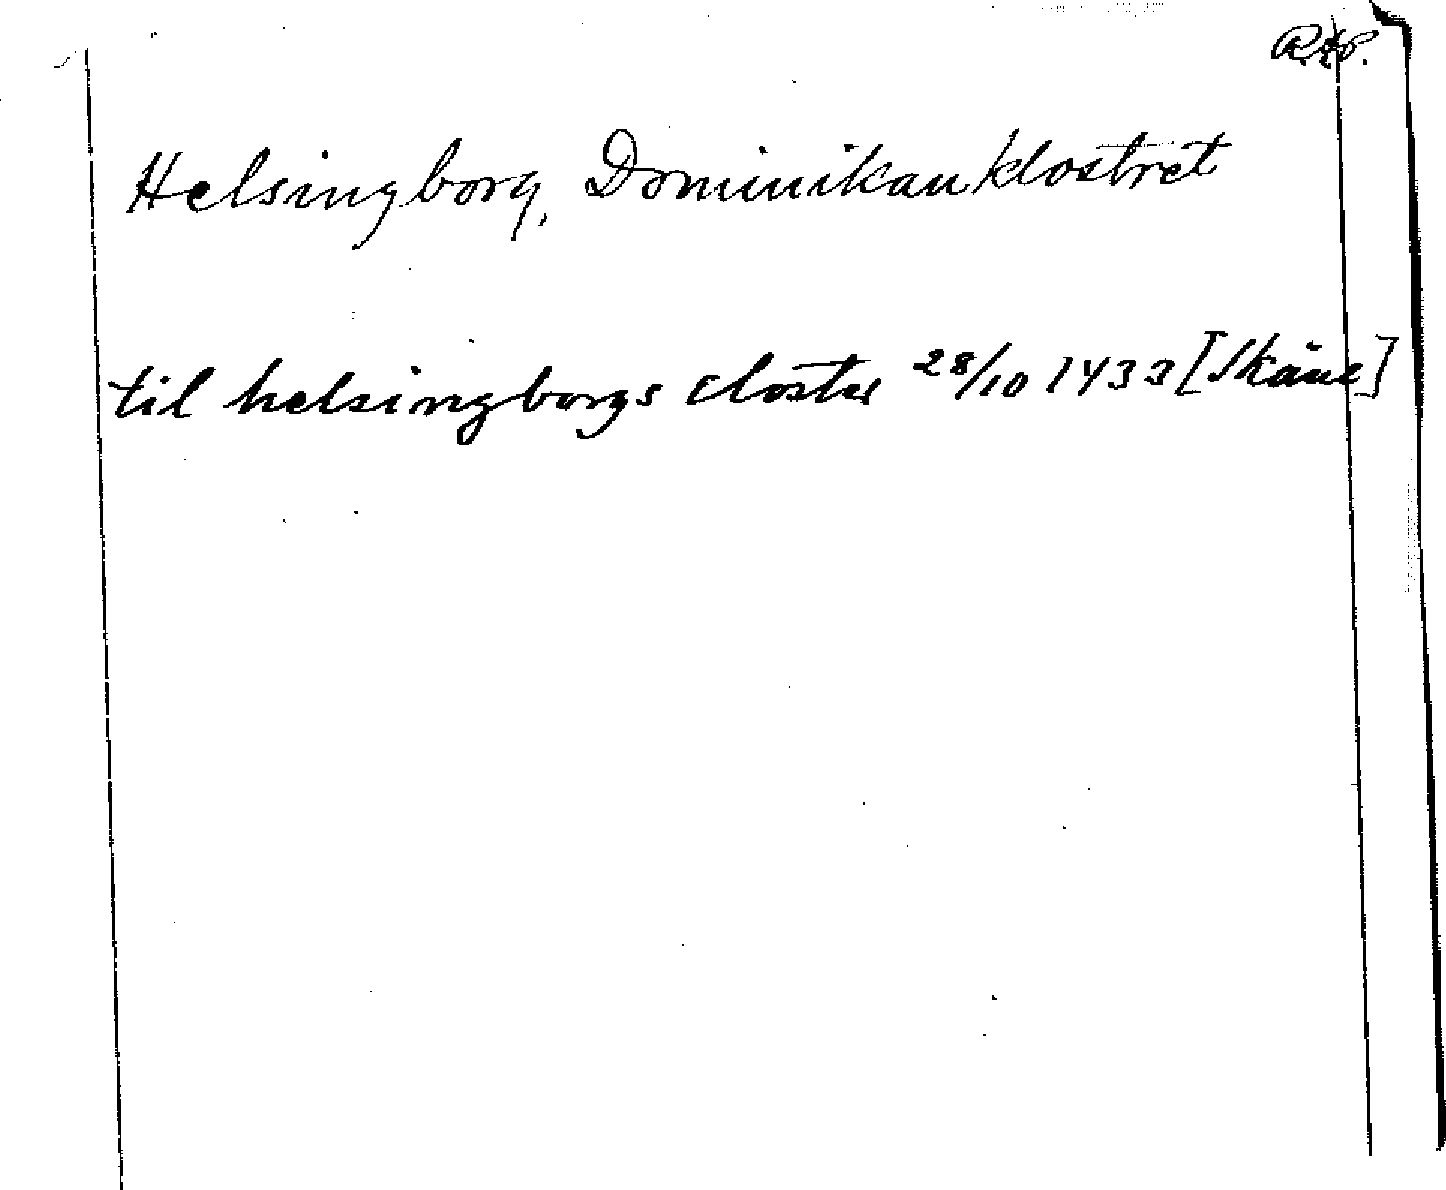 RAP.
Helsingborg, Dominikanklostret
til helsingborgs closter 28/10 1433 [Skåne]